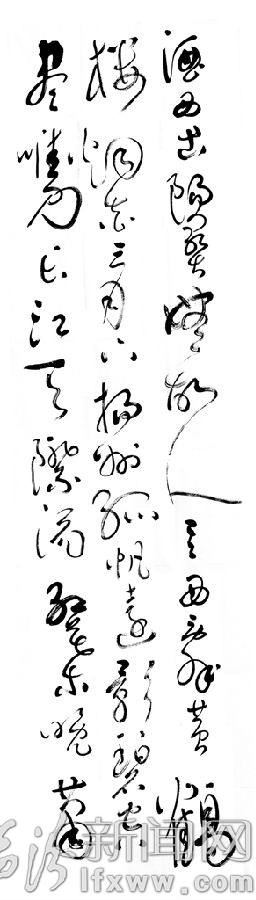 酒西出陽關無故人西辭黄鶴
樓烟花三月下揚州孤帆遠影碧空
盡唯見長江天際流
新闻网
lfxww.com